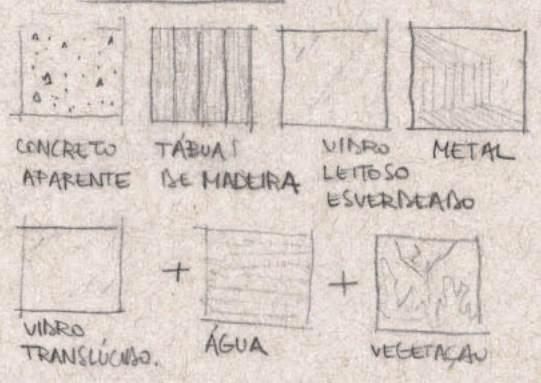 CONCRETO
APARENTE
TÁBUAS
DE MADEIRA
VIDRO
LEITOSO
ESVERDEADO
METAL
VIDRO
TRANSLÚCIDO.
+
ÁGUA
+
VEGETAÇAO